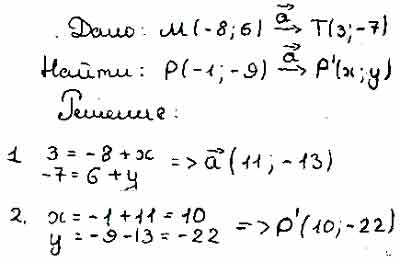 Дано: M(-8;6) →a⃗ T(3;-7)
Найти: P(-1;-9) →a⃗ P'(x;y)
Решение:
1 3 = -8 + x => a⃗(11;-13)
-7 = 6 + y
2. x = -1 + 11 = 10 => P'(10;-22)
y = -9 - 13 = -22